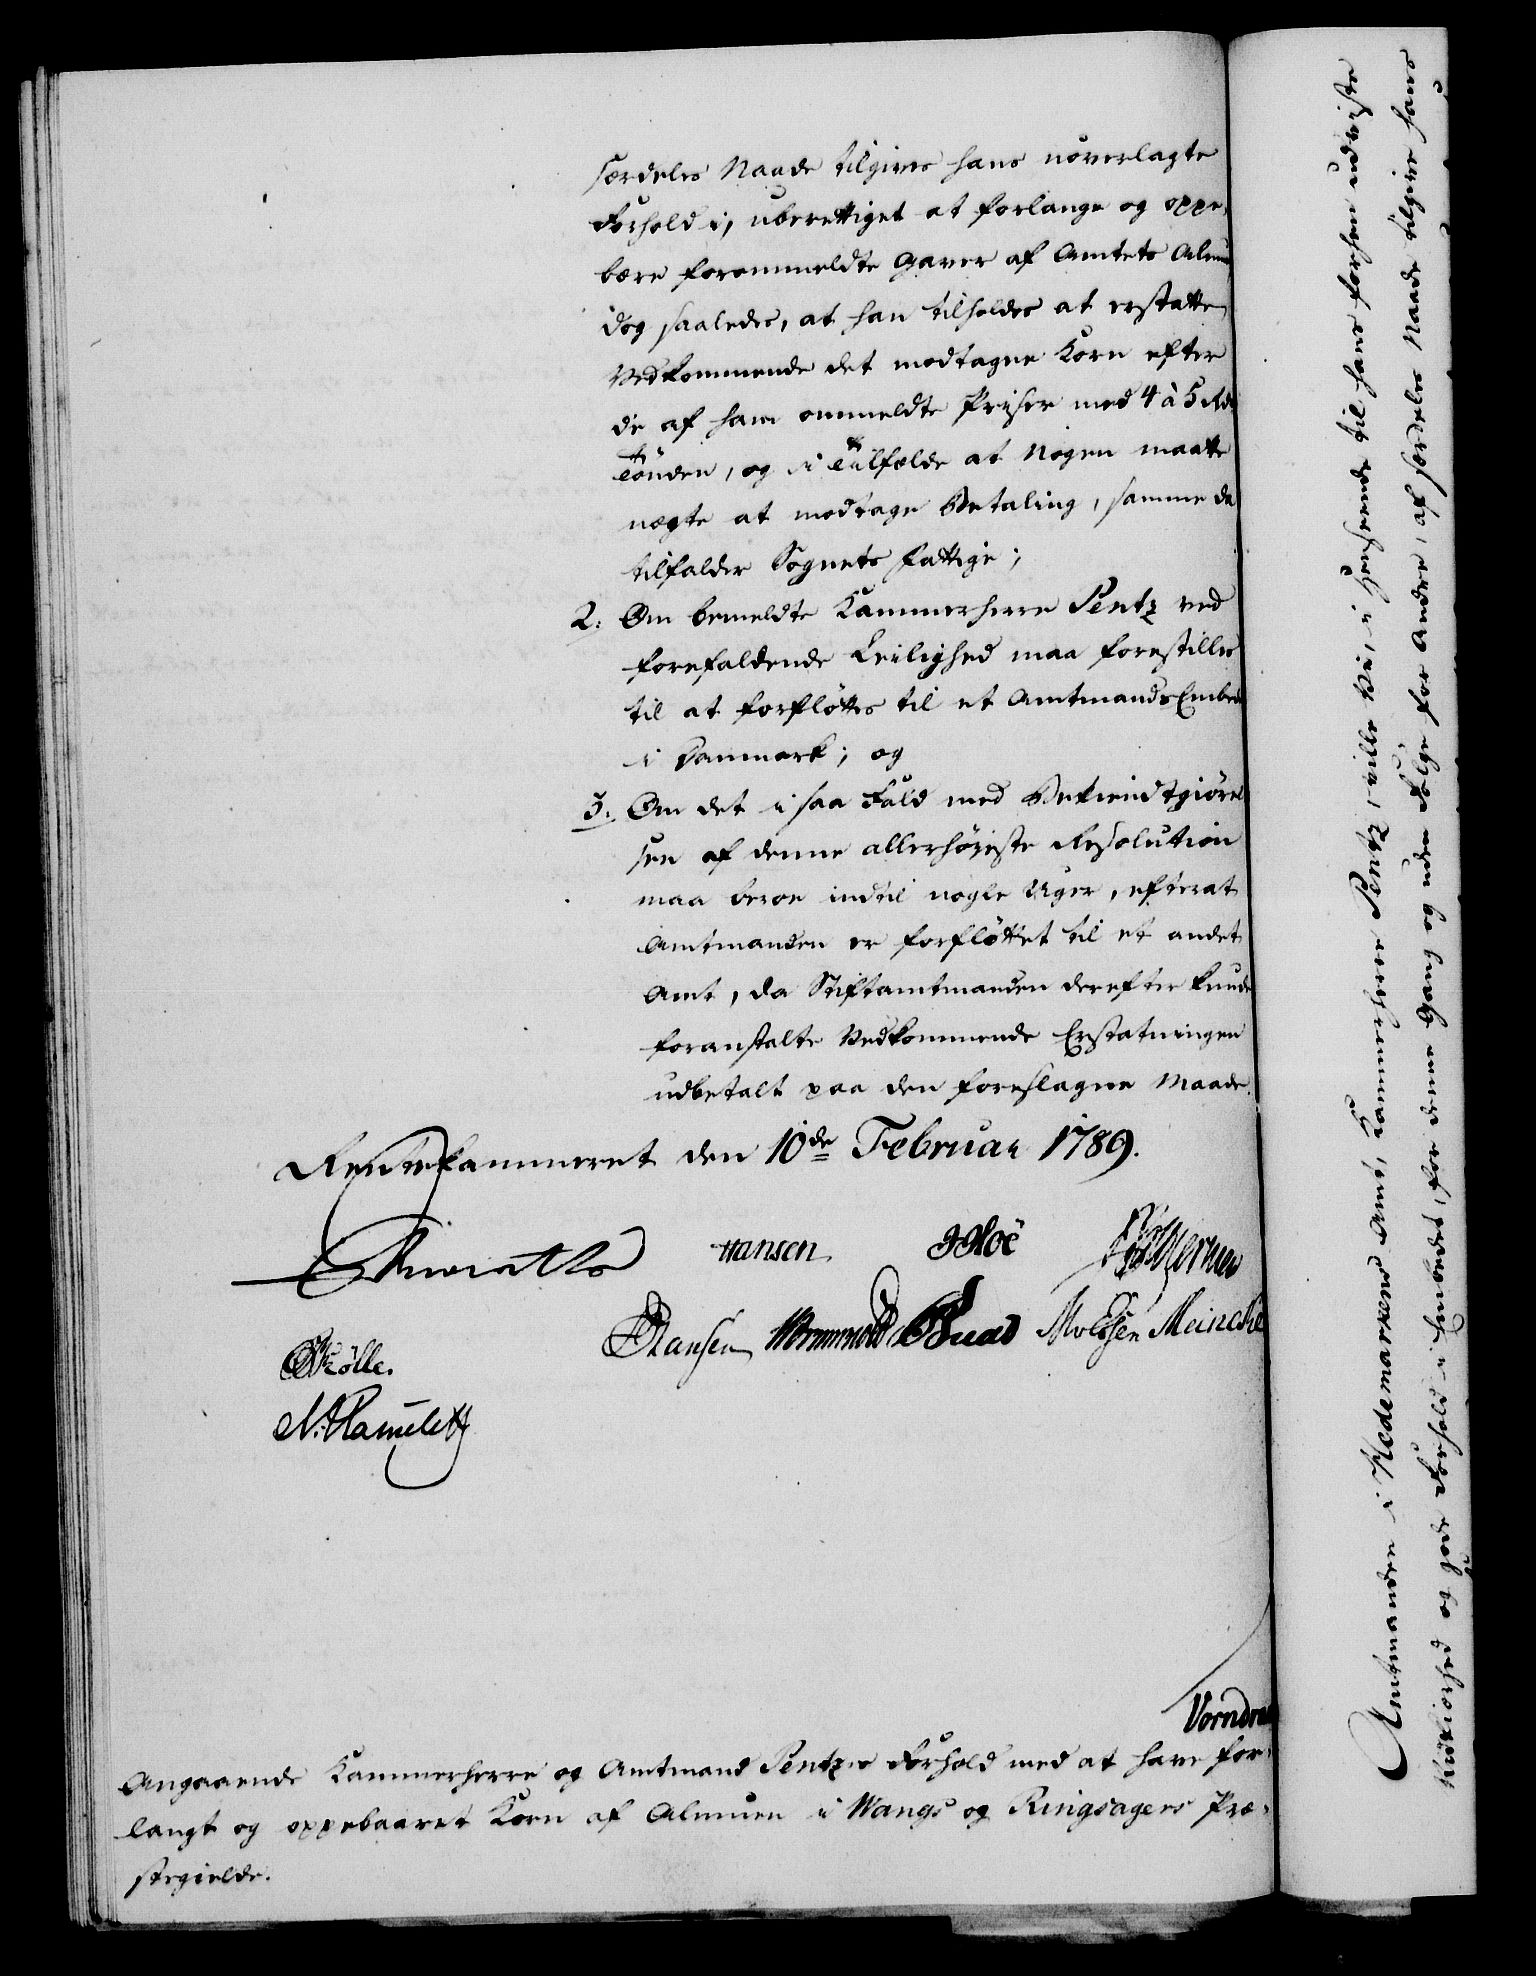 særdeles Naade tilgives hans uoverlagte
Forhold i, uberettiget at forlange og oppe-
bære forommeldte Gaver af Amtets Almue
dog saaledes, at han tilholdes at erstatte
Vedkommende det modtagne Korn efter
de af ham ommeldte Priser med 4 à 5 Rd
Tönden, og i Tilfælde at Nogen maatte
nægte at modtage Betaling, samme da
tilfalder Sognets Fattige;
2. Om bemeldte Kammerherre Pentz ved
forefaldende Leilighed maa forestilles
til at forflöttes til et Amtmands Embede
i Danmark; og
3. Om det i saa Fald med Bekiendtgiörel
sen af denne allerhöieste Resolution
maa beroe indtil nogle Uger, efterat
Amtmanden er forflöttet til et andet
Amt, da Stiftamtmanden derefter kunde
foranstalte Vedkommende Erstatningen
udbetalt paa den foreslagne Maade.
Rentekammeret den 10de Februar 1789.
Hansen
Hansen
Meincke
Kölle.
Vorndran
Angaaende Kammerherre og Amtmand Pentzes Forhold med at have for-
langt og oppebaaret Korn af Almuen i Wangs og Ringsagers Præ-
stegielde.
Amtmanden i Hedemarkens Amt, Kammerherre Pentz, ville Vi, i Henseende til hans forhen udviste
og gode Forhold i Embedet, for denne Gang og uden Fölge for Andre, af særdeles Naade tilgive hans